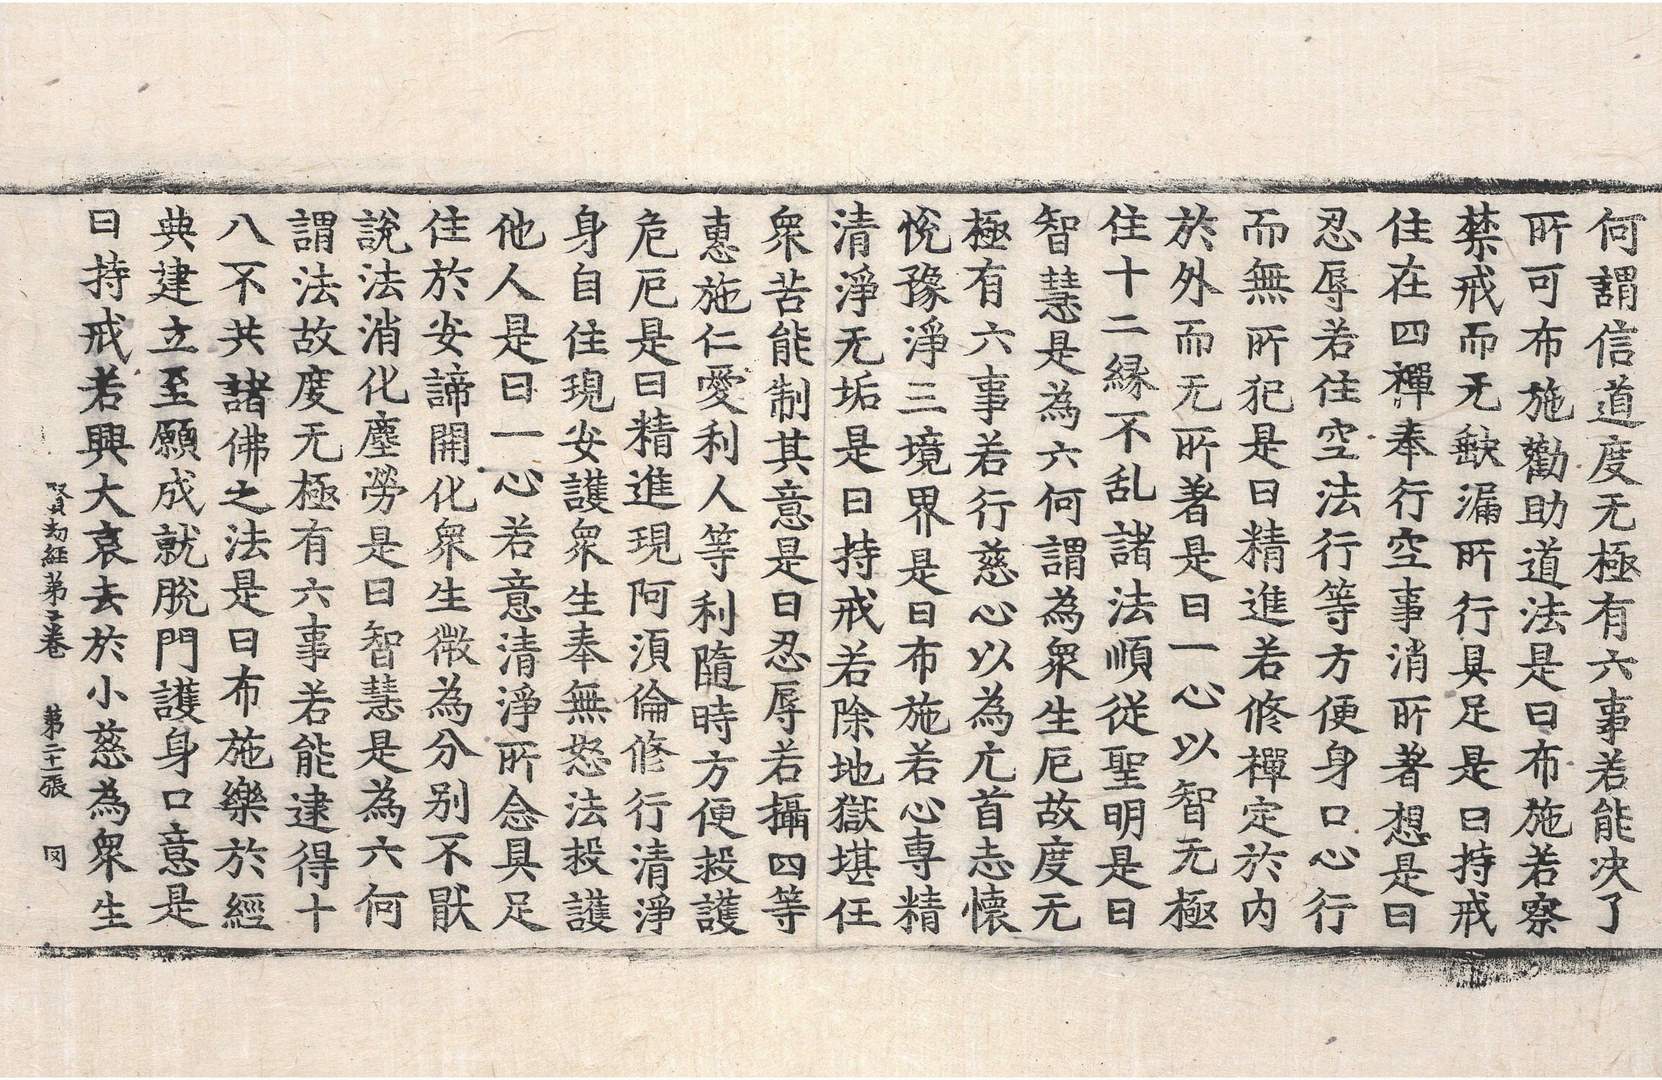 何謂信道度无極有六事若能决了
所可布施勸助道法是曰布施若察
禁戒而无缺漏所行具足是曰持戒
住在四禪奉行空事消所著想是曰
忍辱若住空法行等方便身口心行
而無所犯是曰精進若修禪定於内
於外而无所著是曰一心以智无極
住十二縁不乱諸法順從聖明是曰
智慧是為六何謂為衆生厄故度无
極有六事若行慈心以為亢首志懷
悅豫淨三境界是曰布施若心專精
清淨无垢是曰持戒若除地獄堪任
衆苦能制其意是曰忍辱若攝四等
惠施仁愛利人等利隨時方便救護
危厄是曰精進現阿湏倫修行清淨
身自住現安護衆生奉無怒法救護
他人是曰一心若意清淨所念具足
住於安諦開化衆生微為分别不猒
說法消化塵勞是曰智慧是為六何
謂法故度无極有六事若能逮得十
八不共諸佛之法是曰布施樂於經
典建立至願成就脫門護身口意是
曰持戒若興大哀去於小慈為衆生
賢劫經第三卷 第二十一張